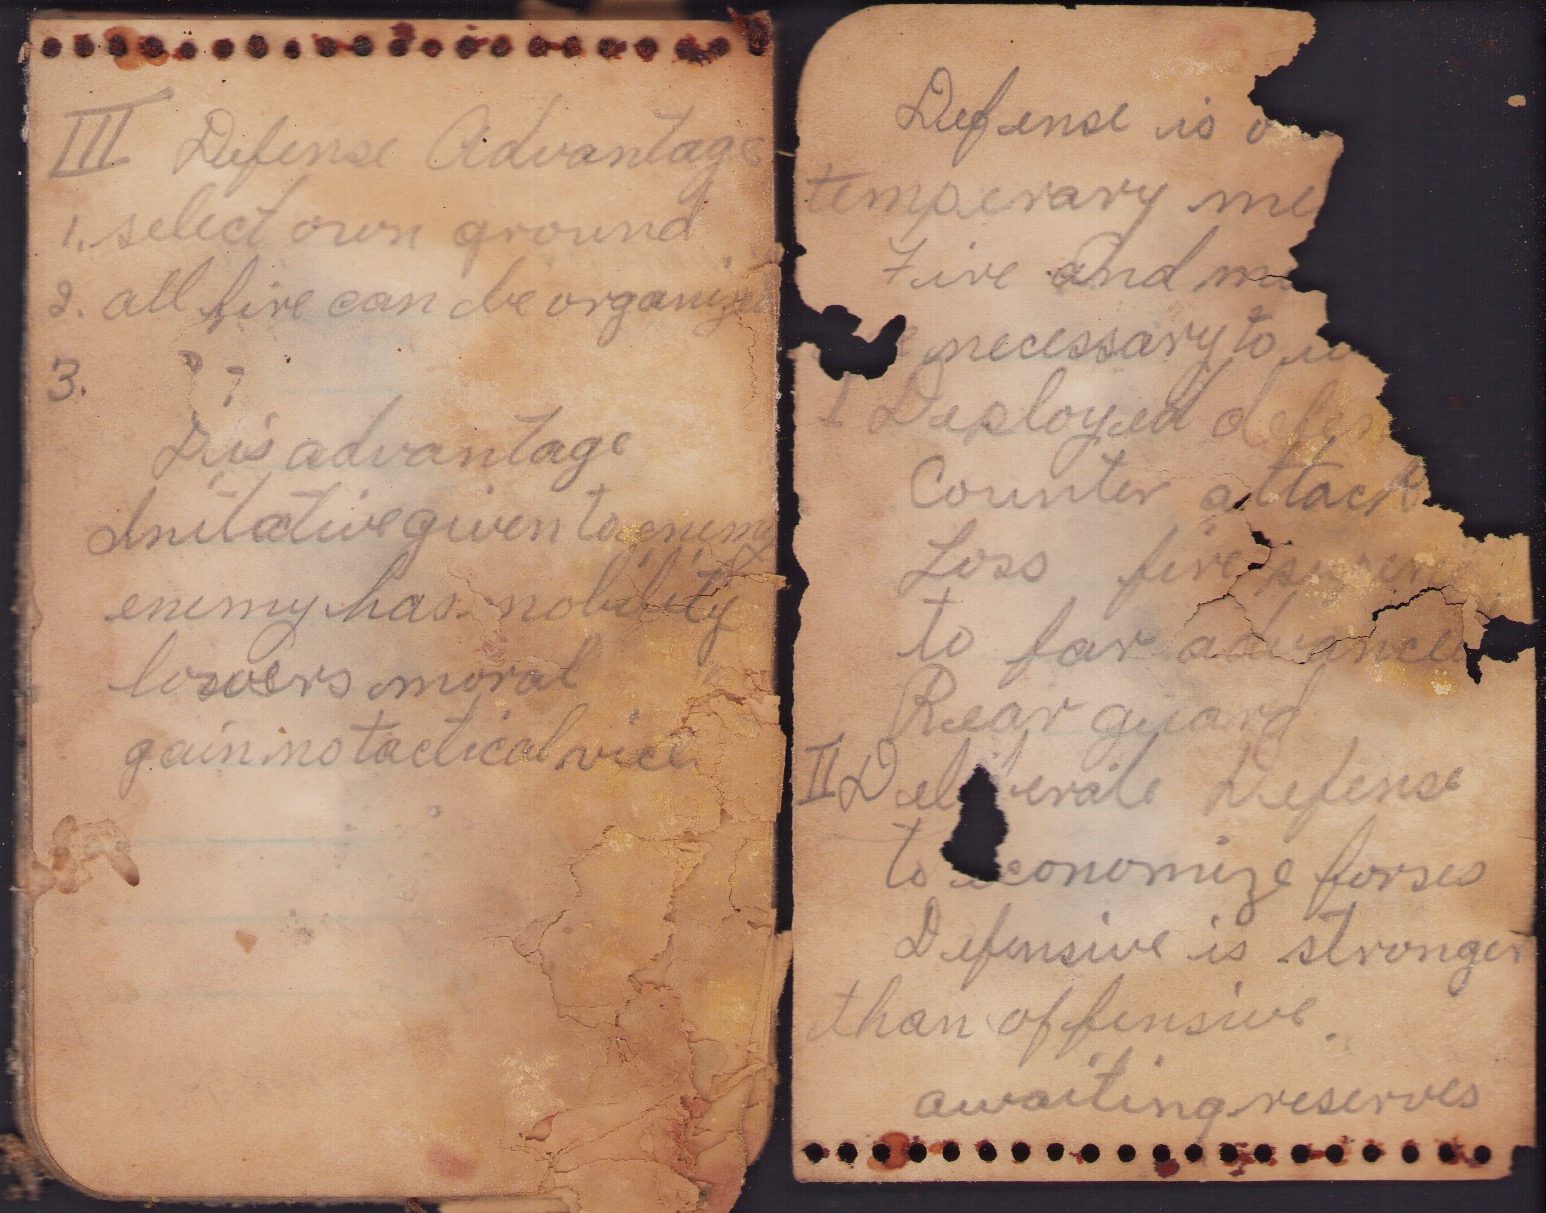 III Defense Advantage
1. select own ground
2. all fire can be organize
3. ? ?
Disadvantage
Initative given to enemy
enemy has mobility
lowers moral
gain no tactical vict
Defense is
temperary me
Fire and m
necessary to
I Deployed defen
Counter attack
Loss fire
to far advanced
Rear guard
II Deliberate Defense
to economize forses
Defensive is stronger
than offensive.
awaiting reserves